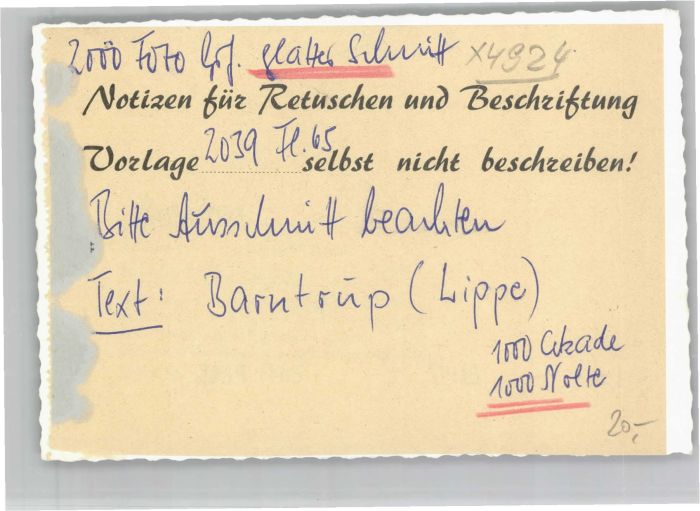 2000 Foto Gr. glatter Schnitt x4924
Notizen für Retuschen und Beschriftung
Vorlage 2039 Fl. 65 selbst nicht beschreiben!
Bitte Ausschnitt beachten
Text: Barntrup (Lippe)
1000
1000 Nolte
20,-